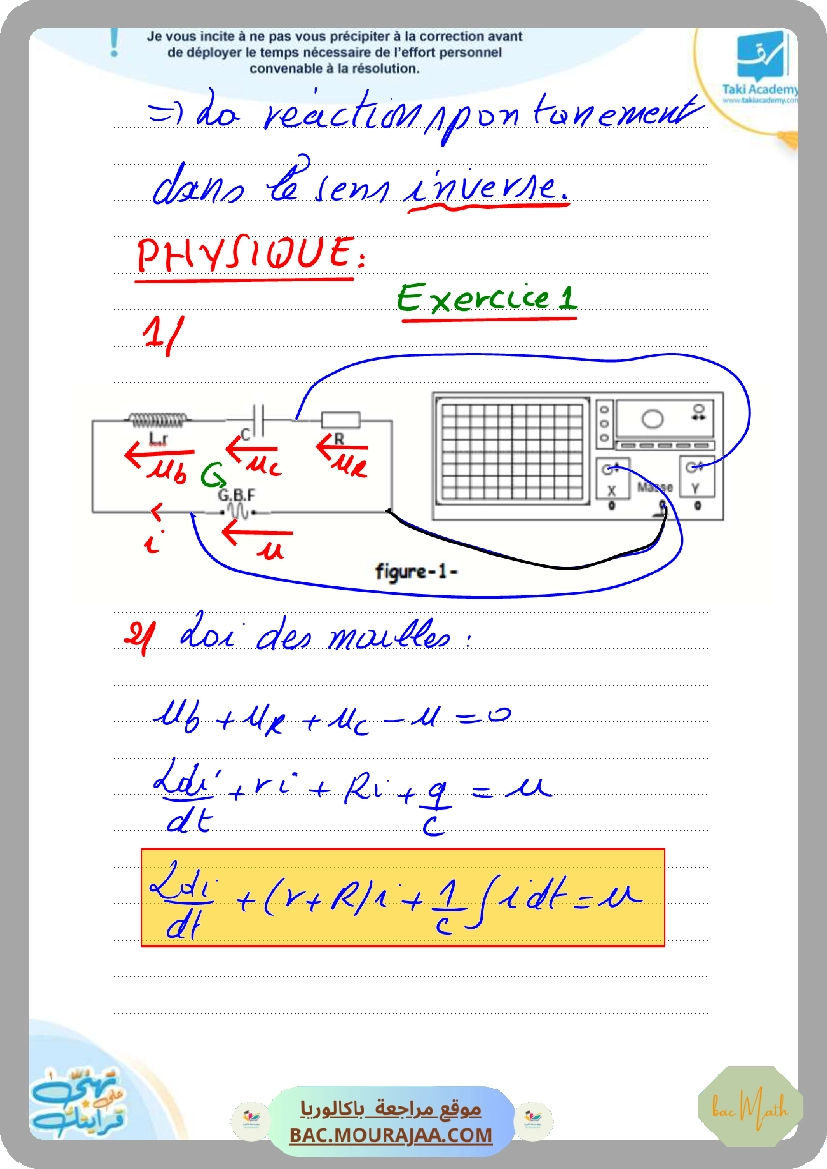 Je vous incite à ne pas vous précipiter à la correction avant
de déployer le temps nécessaire de l'effort personnel
convenable à la résolution.
!
Taki Academy
www.takiacademy.com
=> La réaction spontanement
dans le sens inverse.
PHYSIQUE:
Exercice 1
1/
L.r
C
R
ub
uc
uR
G.B.F
i
u
X
Masse
Y
figure-1-
2/ Loi des mailles :
ub + uR + uc - u = 0
Ldi/dt + ri + Ri + q/c = u
Ldi/dt + (r+R)i + 1/c ∫ i dt = u
موقع مراجعة باكالوريا
BAC.MOURAJAA.COM
bac Math